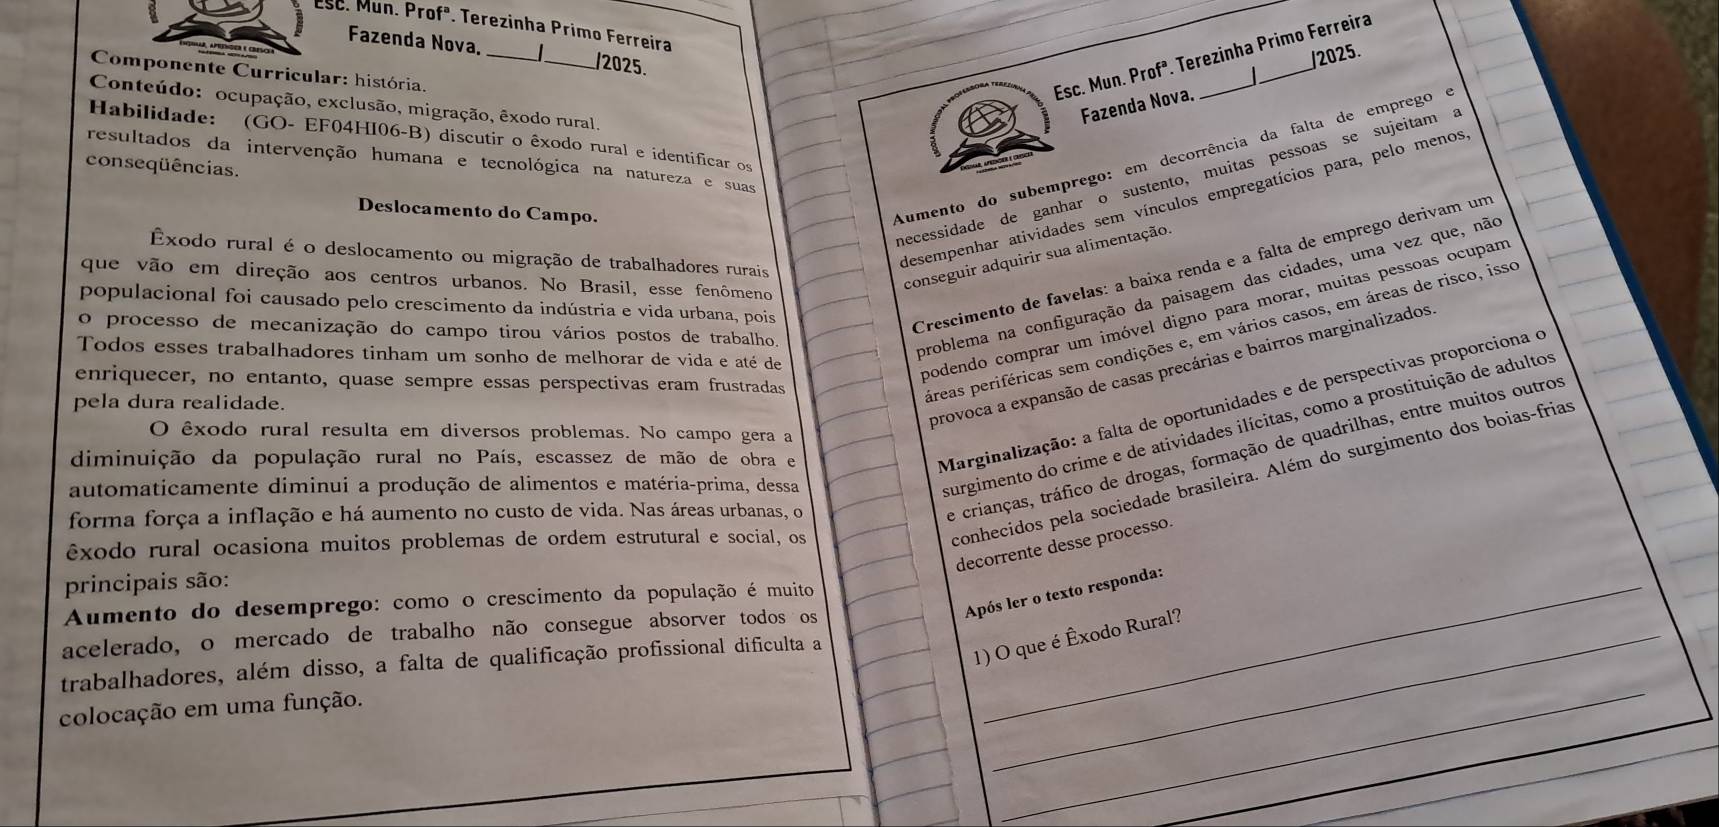 Esc. Mun. Profª. Terezinha Primo Ferreira
Fazenda Nova, _____/_____/2025.
ENSINAR, APRENDER E CRESCER
Componente Curricular: história.
Conteúdo: ocupação, exclusão, migração, êxodo rural.
Habilidade: (GO- EF04HI06-B) discutir o êxodo rural e identificar os
resultados da intervenção humana e tecnológica na natureza e suas
conseqüências.
Deslocamento do Campo.
Êxodo rural é o deslocamento ou migração de trabalhadores rurais
que vão em direção aos centros urbanos. No Brasil, esse fenômeno
populacional foi causado pelo crescimento da indústria e vida urbana, pois
o processo de mecanização do campo tirou vários postos de trabalho.
Todos esses trabalhadores tinham um sonho de melhorar de vida e até de
enriquecer, no entanto, quase sempre essas perspectivas eram frustradas
pela dura realidade.
O êxodo rural resulta em diversos problemas. No campo gera a
diminuição da população rural no País, escassez de mão de obra e
automaticamente diminui a produção de alimentos e matéria-prima, dessa
forma força a inflação e há aumento no custo de vida. Nas áreas urbanas, o
êxodo rural ocasiona muitos problemas de ordem estrutural e social, os
principais são:
Aumento do desemprego: como o crescimento da população é muito
acelerado, o mercado de trabalho não consegue absorver todos os
trabalhadores, além disso, a falta de qualificação profissional dificulta a
colocação em uma função.
Esc. Mun. Profª. Terezinha Primo Ferreira
Fazenda Nova, _____/_____/2025.
Aumento do subemprego: em decorrência da falta de emprego e
necessidade de ganhar o sustento, muitas pessoas se sujeitam a
desempenhar atividades sem vínculos empregatícios para, pelo menos,
conseguir adquirir sua alimentação.
Crescimento de favelas: a baixa renda e a falta de emprego derivam um
problema na configuração da paisagem das cidades, uma vez que, não
podendo comprar um imóvel digno para morar, muitas pessoas ocupam
áreas periféricas sem condições e, em vários casos, em áreas de risco, isso
provoca a expansão de casas precárias e bairros marginalizados.
Marginalização: a falta de oportunidades e de perspectivas proporciona o
surgimento do crime e de atividades ilícitas, como a prostituição de adultos
e crianças, tráfico de drogas, formação de quadrilhas, entre muitos outros
conhecidos pela sociedade brasileira. Além do surgimento dos boias-frias
decorrente desse processo.
Após ler o texto responda:
1) O que é Êxodo Rural?